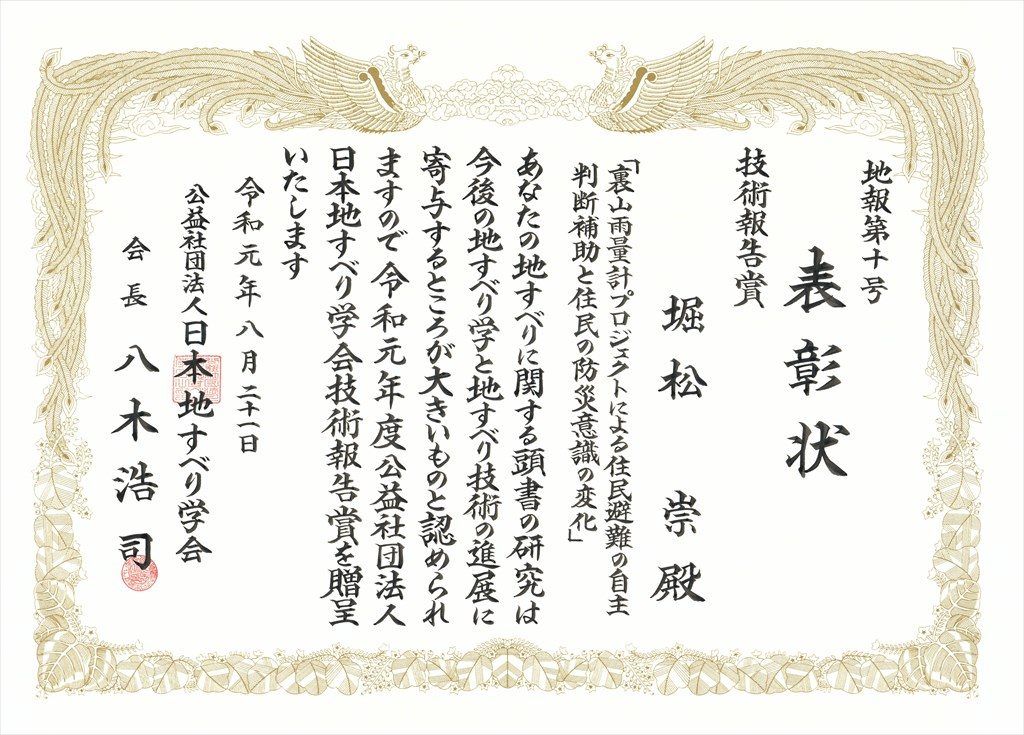 地報第十号
表彰状
技術報告賞
堀松 崇殿
「裏山雨量計プロジェクトによる住民避難の自主
判断補助と住民の防災意識の変化」
あなたの地すべりに関する頭書の研究は
今後の地すべり学と地すべり技術の進展に
寄与するところが大きいものと認められ
ますので令和元年度公益社団法人
日本地すべり学会技術報告賞を贈呈
いたします
令和元年八月二十一日
公益社団法人日本地すべり学会
会長 八木浩司